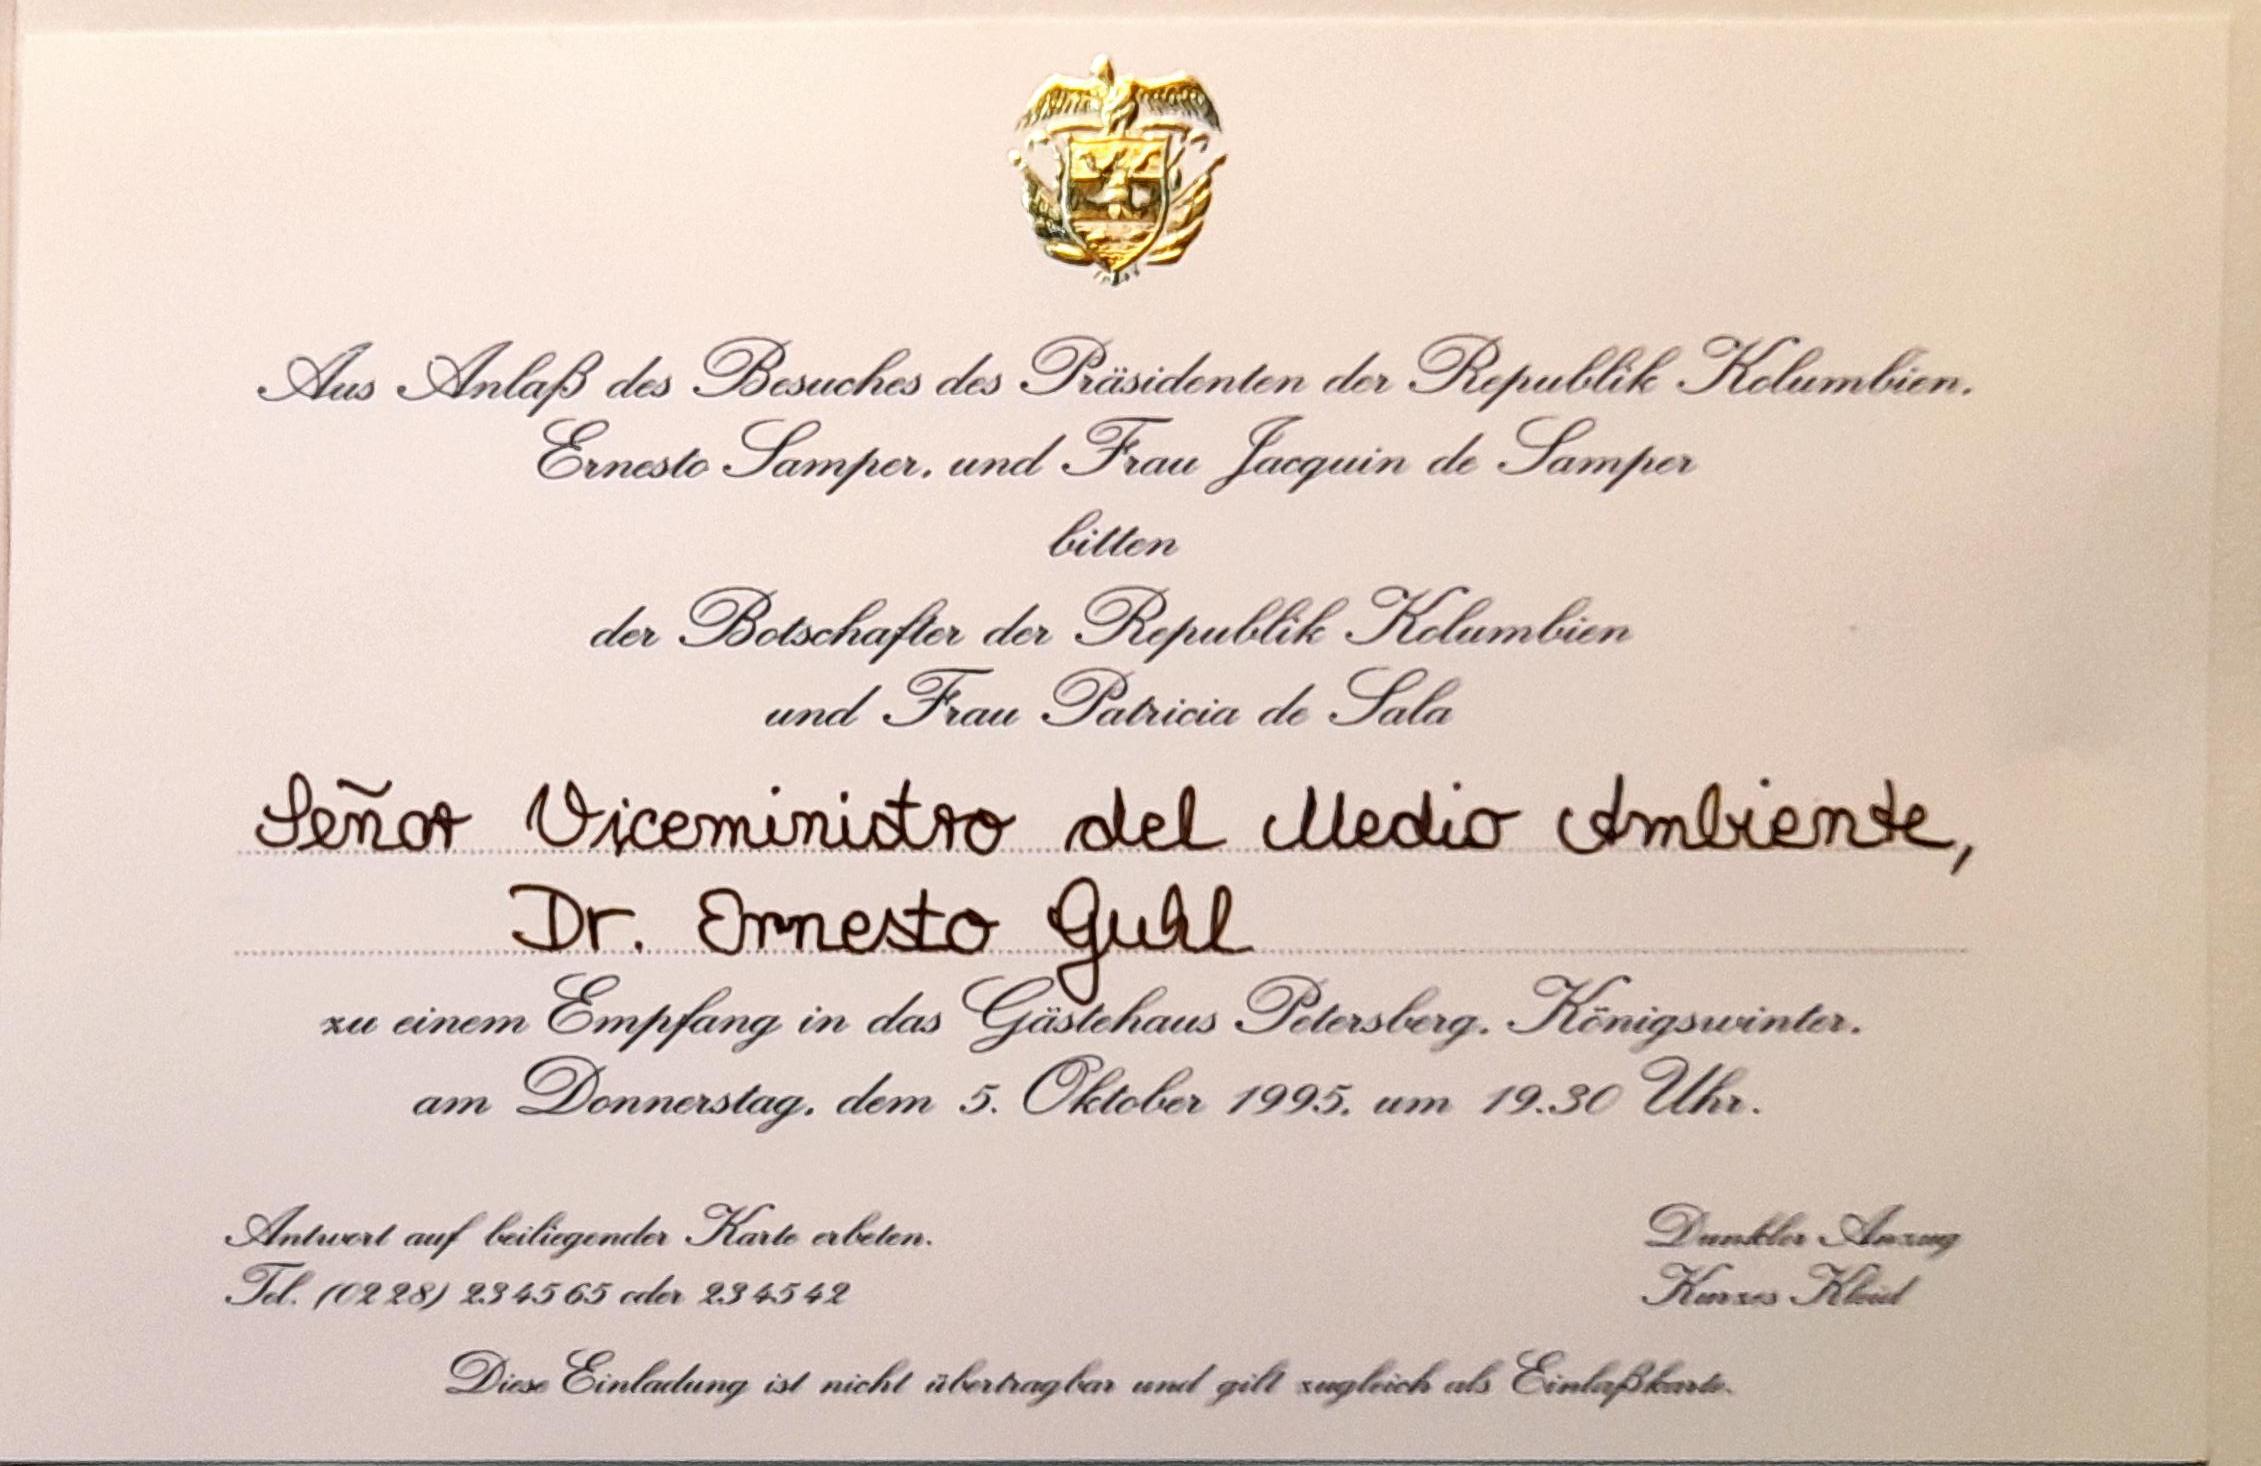 Aus Anlaß des Besuches des Präsidenten der Republik Kolumbien,
Ernesto Samper, und Frau Jacquin de Samper
bitten
der Botschafter der Republik Kolumbien
und Frau Patricia de Sala
Señor Viceministro del Medio Ambiente,
Dr. Ernesto Guhl
zu einem Empfang in das Gästehaus Petersberg, Königswinter,
am Donnerstag, dem 5. Oktober 1995, um 19.30 Uhr.
Antwort auf beiliegender Karte erbeten.
Tel. (0228) 234565 oder 234542
Dunkler Anzug
Kurzes Kleid
Diese Einladung ist nicht übertragbar und gilt zugleich als Einlaßkarte.